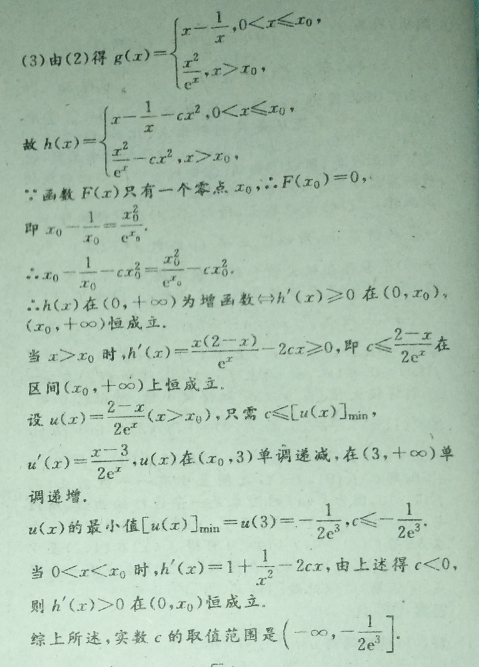 (3)由(2)得 g(x)={x-1/x,0<x≤x₀,
x²/eˣ,x>x₀,
故 h(x)={x-1/x-cx²,0<x≤x₀,
x²/eˣ-cx²,x>x₀,
∵函数 F(x)只有一个零点 x₀,∴F(x₀)=0,
即 x₀-1/x₀=x₀²/e^x₀.
∴x₀-1/x₀-cx₀²=x₀²/e^x₀-cx₀².
∴h(x)在(0,+∞)为增函数⇔h′(x)≥0 在(0,x₀),
(x₀,+∞)恒成立.
当 x>x₀ 时,h′(x)=x(2-x)/eˣ-2cx≥0,即 c≤(2-x)/2eˣ在
区间(x₀,+∞)上恒成立.
设 u(x)=(2-x)/2eˣ(x>x₀),只需 c≤[u(x)]min,
u′(x)=(x-3)/2eˣ,u(x)在(x₀,3)单调递减,在(3,+∞)单
调递增.
u(x)的最小值[u(x)]min=u(3)=-1/2e³,c≤-1/2e³.
当 0<x<x₀ 时,h′(x)=1+1/x²-2cx,由上述得 c<0,
则 h′(x)>0 在(0,x₀)恒成立.
综上所述,实数 c 的取值范围是(-∞,-1/2e³].